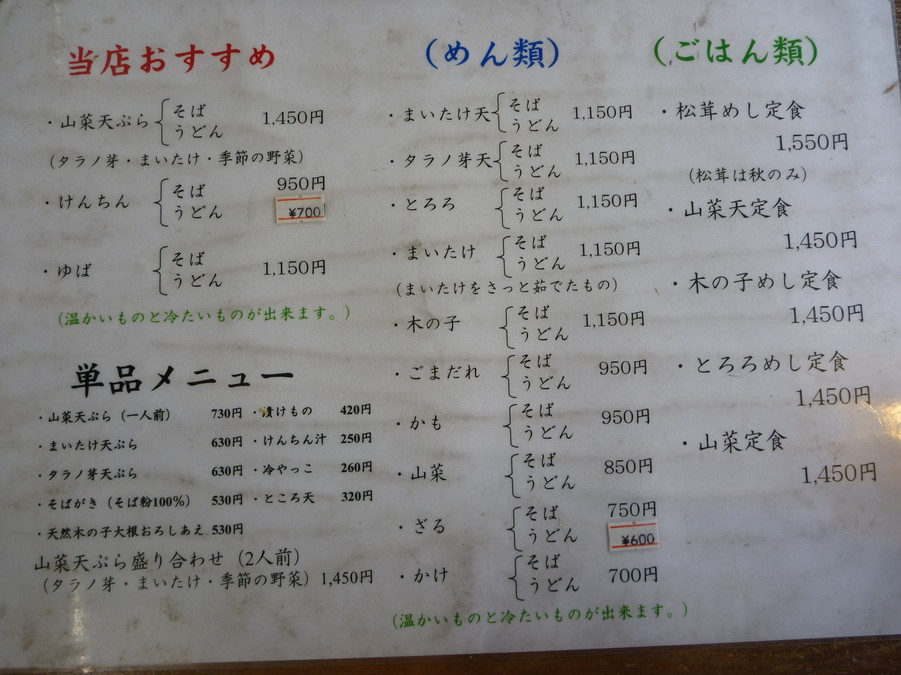 当店おすすめ
・山菜天ぷら そば うどん 1,450円
(タラノ芽・まいたけ・季節の野菜)
・けんちん そば うどん 950円
¥700
・ゆば そば うどん 1,150円
(温かいものと冷たいものが出来ます。)
単品メニュー
・山菜天ぷら (一人前) 730円
・まいたけ天ぷら 630円
・タラノ芽天ぷら 630円
・そばがき (そば粉100%) 530円
・天然木の子大根おろしあえ 530円
・漬けもの 420円
・けんちん汁 250円
・冷やっこ 260円
・ところ天 320円
山菜天ぷら盛り合わせ (2人前)
(タラノ芽・まいたけ・季節の野菜) 1,450円
(めん類)
・まいたけ天 そば うどん 1,150円
・タラノ芽天 そば うどん 1,150円
・とろろ そば うどん 1,150円
・まいたけ そば うどん 1,150円
(まいたけをさっと茹でたもの)
・木の子 そば うどん 1,150円
・ごまだれ そば うどん 950円
・かも そば うどん 950円
・山菜 そば うどん 850円
・ざる そば うどん 750円
¥600
・かけ そば うどん 700円
(温かいものと冷たいものが出来ます。)
(ごはん類)
・松茸めし定食
1,550円
(松茸は秋のみ)
・山菜天定食
1,450円
・木の子めし定食
1,450円
・とろろめし定食
1,450円
・山菜定食
1,450円